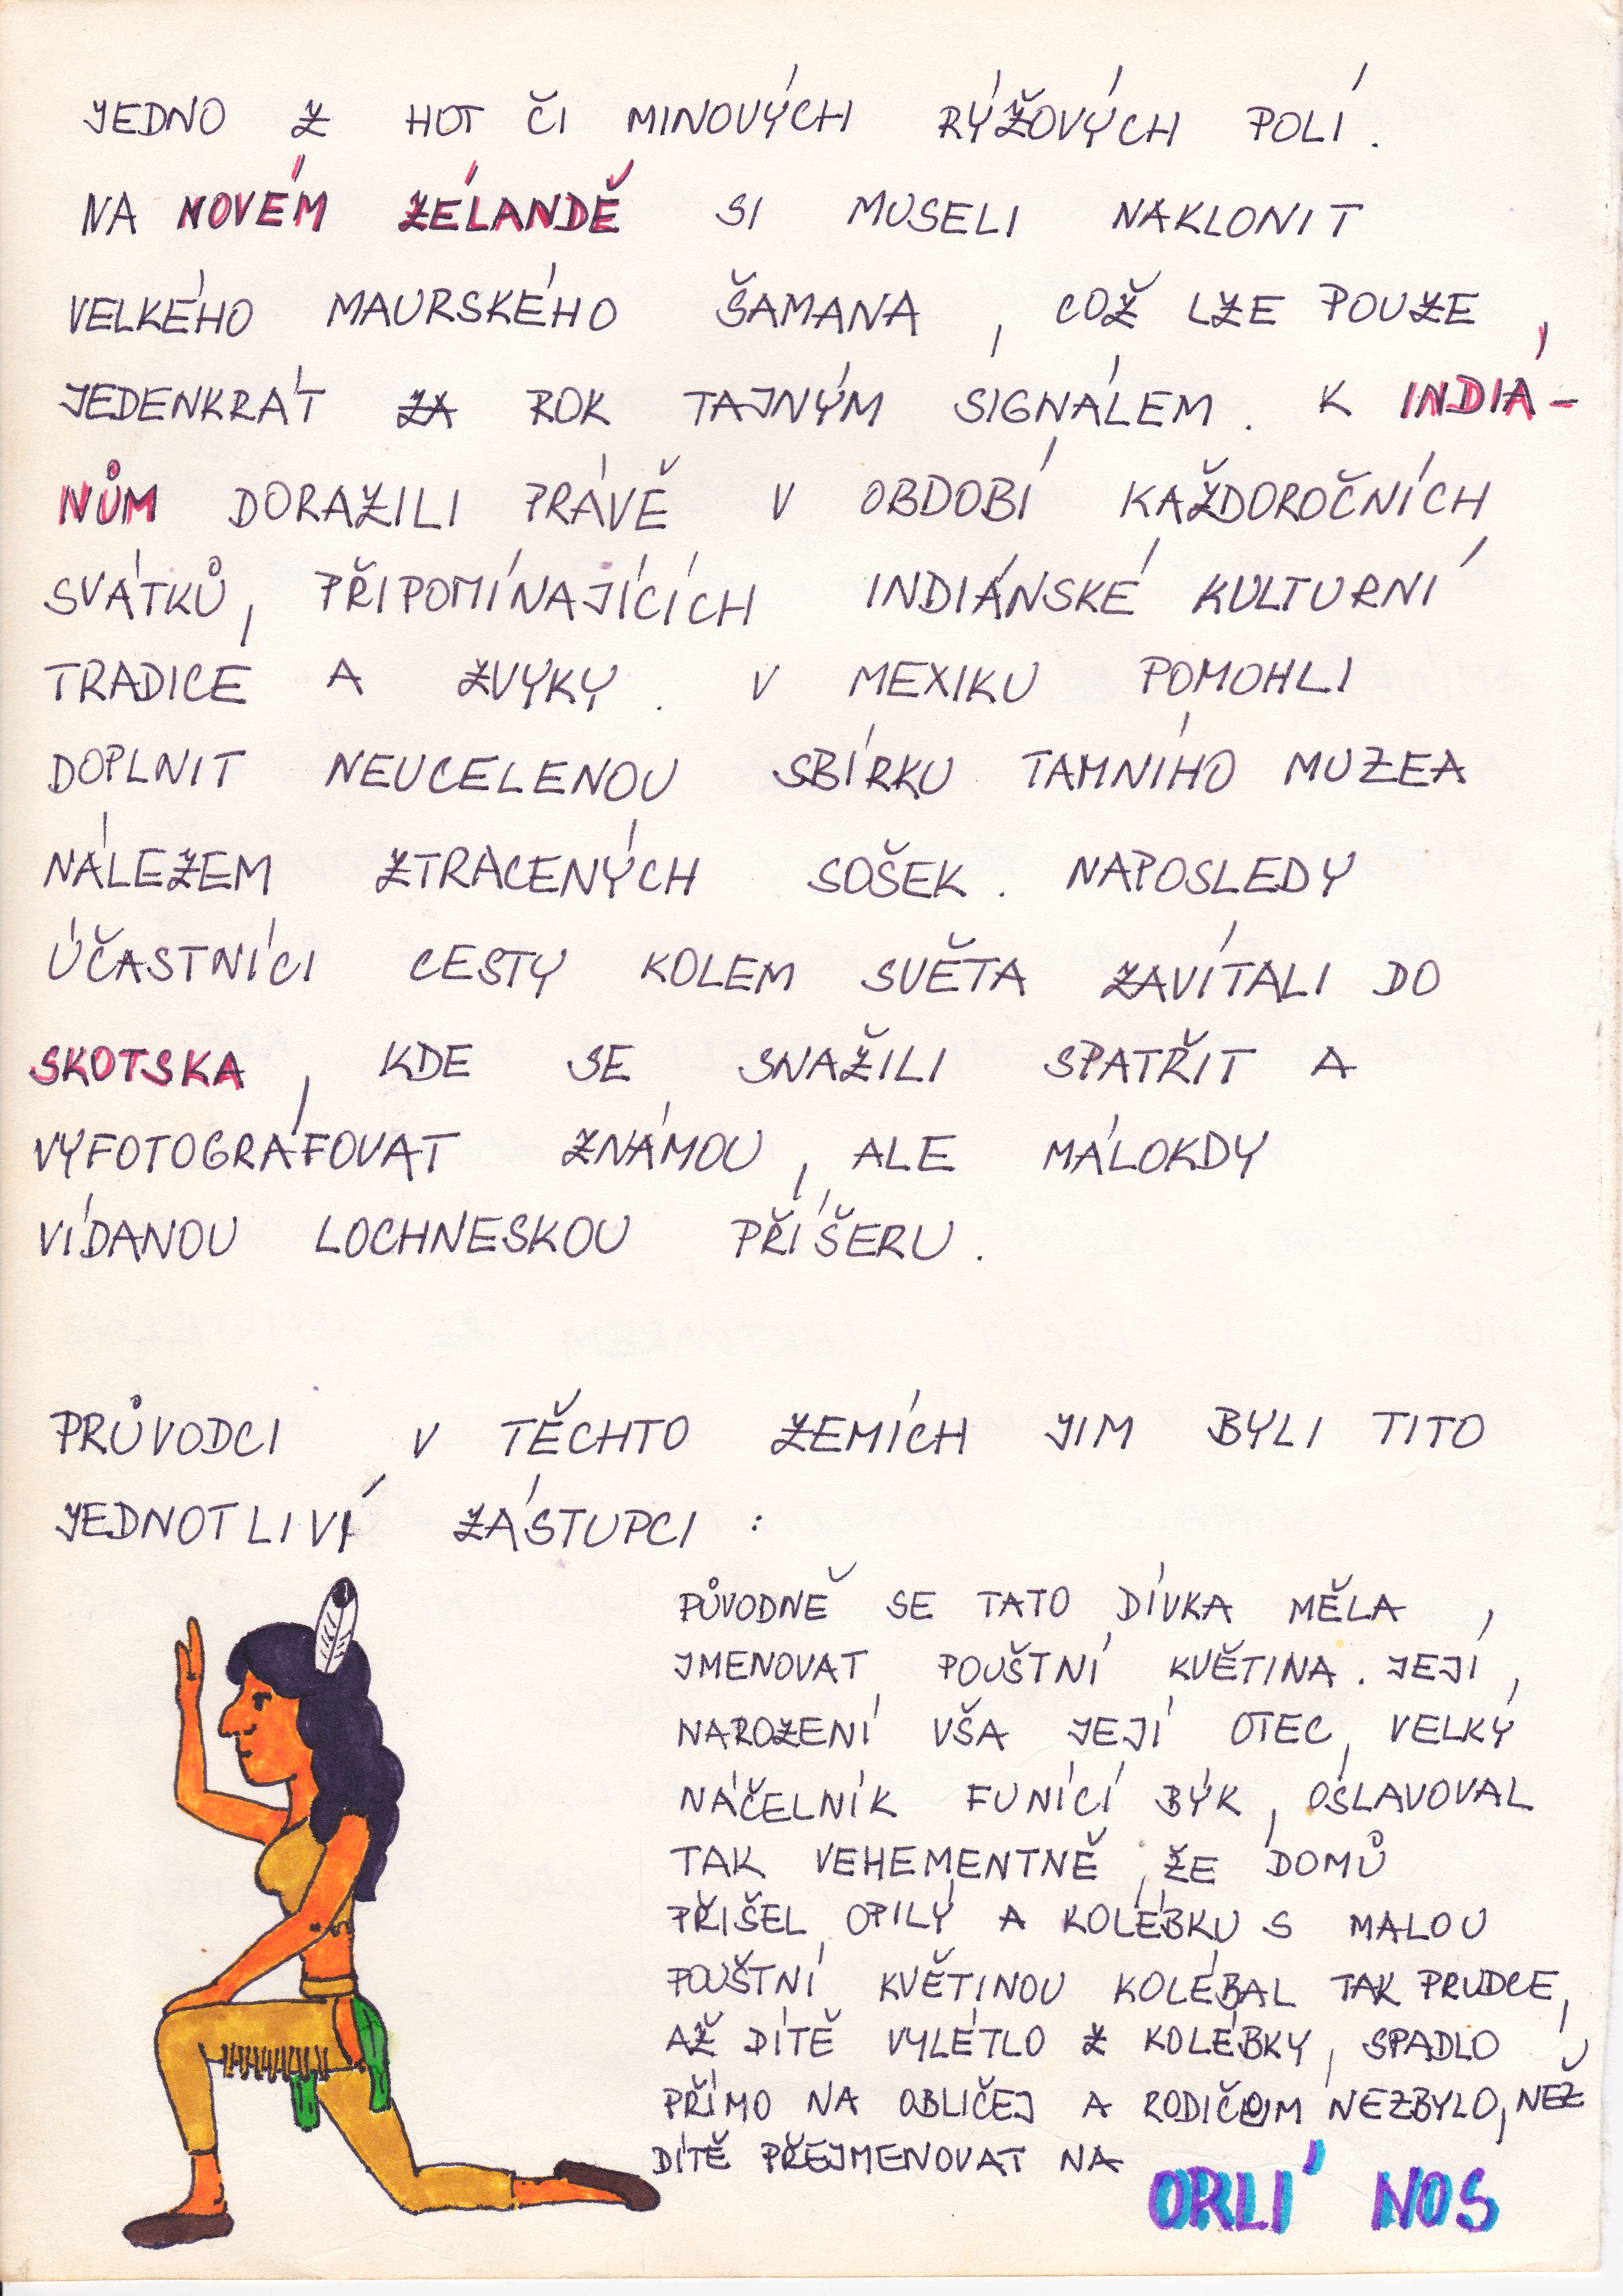 JEDNO Z HOT ČI MINOVÝCH RÝŽOVÝCH POLÍ.
NA NOVÉM ZÉLANDĚ SI MUSELI NAKLONIT
VELKÉHO MAURSKÉHO ŠAMANA, COŽ LZE POUZE
JEDENKRÁT ZA ROK TAJNÝM SIGNÁLEM. K INDIÁ-
NŮM DORAZILI PRÁVĚ V OBDOBÍ KAŽDOROČNÍCH
SVÁTKŮ, PŘIPOMÍNAJÍCÍCH INDIÁNSKÉ KULTURNÍ
TRADICE A ZVYKY. V MEXIKU POMOHLI
DOPLNIT NEUCELENOU SBÍRKU TAMNÍHO MUZEA
NÁLEZEM ZTRACENÝCH SOŠEK. NAPOSLEDY
ÚČASTNÍCI CESTY KOLEM SVĚTA ZAVÍTALI DO
SKOTSKA, KDE SE SNAŽILI SPATŘIT A
VYFOTOGRAFOVAT ZNÁMOU, ALE MÁLOKDY
VÍDANOU LOCHNESKOU PŘÍŠERU.
PRŮVODCI V TĚCHTO ZEMÍCH JIM BYLI TITO
JEDNOTLIVÍ ZÁSTUPCI:
PŮVODNĚ SE TATO DÍVKA MĚLA
JMENOVAT POUŠTNÍ KVĚTINA. JEJÍ
NAROZENÍ VŠA JEJÍ OTEC, VELKÝ
NÁČELNÍK FUNÍCÍ BÝK, OSLAVOVAL
TAK VEHEMENTNĚ, ŽE DOMŮ
PŘIŠEL OPILÝ A KOLÉBKU S MALOU
POUŠTNÍ KVĚTINOU KOLÉBAL TAK PRUDCE,
AŽ DÍTĚ VYLÉTLO Z KOLÉBKY, SPADLO
PŘÍMO NA OBLIČEJ A RODIČŮM NEZBYLO, NEŽ
DÍTĚ PŘEJMENOVAT NA ORLÍ NOS